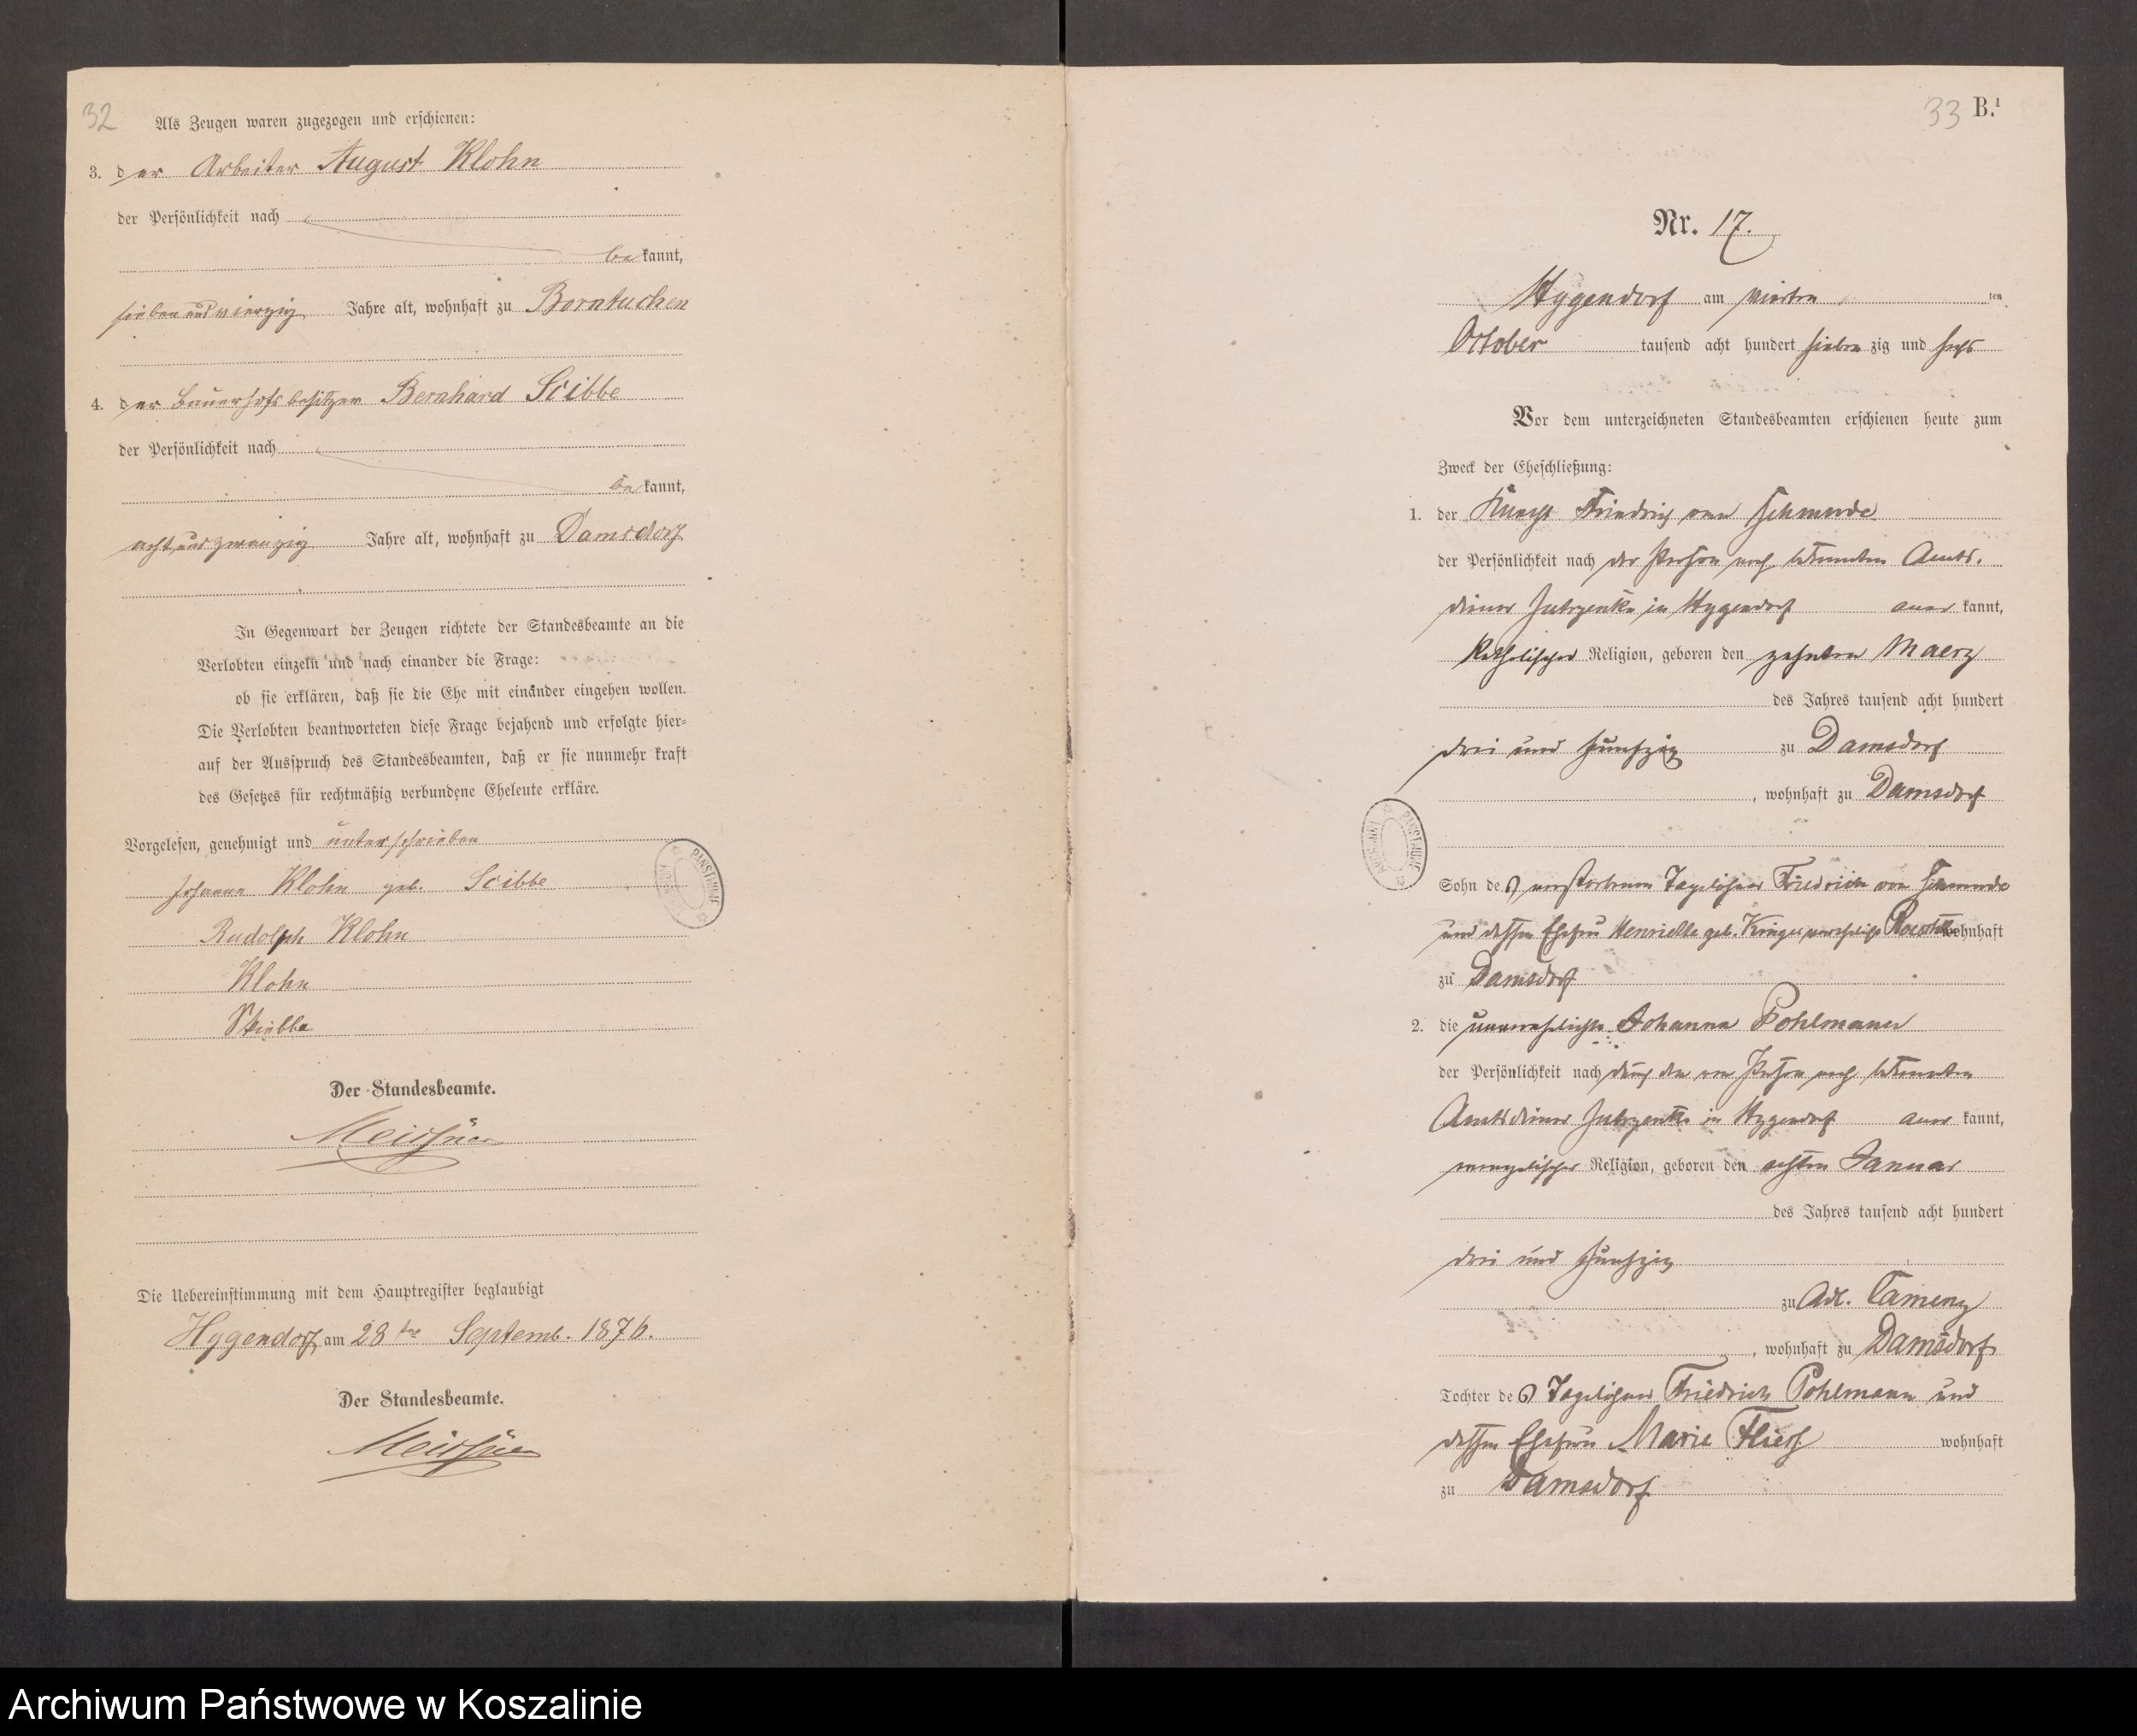 32
Als Zeugen waren zugezogen und erschienen:
3. der Arbeiter August Klohn
der Persönlichkeit nach
bekannt,
sieben und vierzig Jahre alt, wohnhaft zu Borntuchen
4. der Bauerhofsbesitzer Bernhard Scibbe
der Persönlichkeit nach
bekannt,
acht und zwanzig Jahre alt, wohnhaft zu Damsdorf
In Gegenwart der Zeugen richtete der Standesbeamte an die
Verlobten einzeln und nach einander die Frage:
ob sie erklären, daß sie die Ehe mit einander eingehen wollen.
Die Verlobten beantworteten diese Frage bejahend und erfolgte hier-
auf der Ausspruch des Standesbeamten, daß er sie nunmehr kraft
des Gesetzes für rechtmäßig verbundene Eheleute erkläre.
Vorgelesen, genehmigt und unterschrieben
Johanna Klohn geb. Scibbe
Rudolph Klohn
Klohn
Skibba
Der Standesbeamte.
Die Uebereinstimmung mit dem Hauptregister beglaubigt
Hygendorf, am 28ten Septemb. 1876.
Der Standesbeamte.
33 B.¹
Nr. 17.
Hygendorf am vierten ten
October tausend acht hundert siebenzig und sechs
Vor dem unterzeichneten Standesbeamten erschienen heute zum
Zweck der Eheschließung:
1. der Knecht Friedrich von Schmude
der Persönlichkeit nach der Person nach bekannten Amts-
diener in Hygendorf anerkannt,
katholischer Religion, geboren den zehnten Maerz
des Jahres tausend acht hundert
drei und fünfzig zu Damsdorf
, wohnhaft zu Damsdorf
Sohn des verstorbenen Tagelöhner Friedrich von Schmude
und dessen Ehefrau Henriette geb. verehelichte wohnhaft
zu Damsdorf
2. die unverehelichte Johanna Pohlmann
der Persönlichkeit nach durch den von Person nach bekannten
Amtsdiener in Hygendorf anerkannt,
evangelischer Religion, geboren den achten Januar
des Jahres tausend acht hundert
drei und fünfzig
zu Adl.
, wohnhaft zu Damsdorf
Tochter des Tagelöhner Friedrich Pohlmann und
dessen Ehefrau Marie wohnhaft
zu Damsdorf
Archiwum Państwowe w Koszalinie